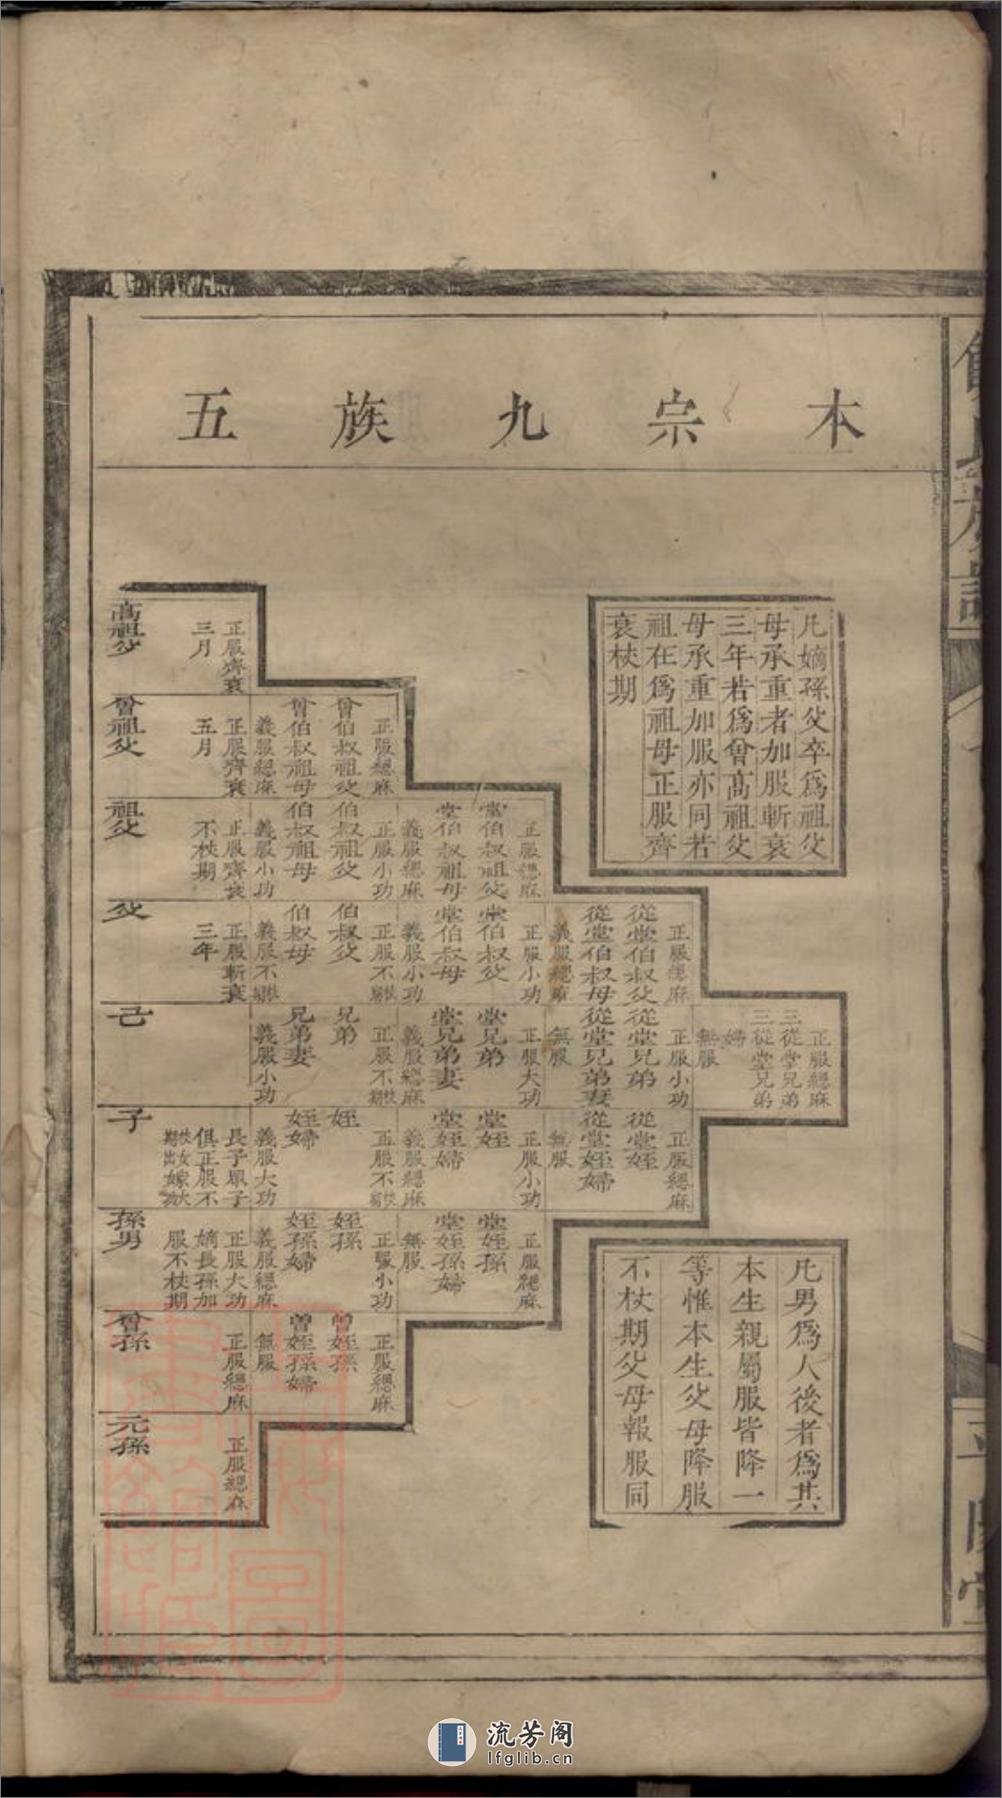 本宗九族五
凡嫡孫父卒爲祖父
母承重者加服斬衰
三年若爲曾高祖父
母承重加服亦同若
祖在爲祖母正服齊
衰杖期
凡男爲人後者爲其
本生親屬服皆降一
等惟本生父母降服
不杖期父母報服同
高祖父
正服齊衰
三月
正服緦麻
曾伯叔祖父
曾伯叔祖母
義服緦麻
曾祖父
正服齊衰
五月
正服緦麻
堂伯叔祖父
堂伯叔祖母
義服緦麻
正服小功
伯叔祖父
伯叔祖母
義服小功
祖父
正服齊衰
不杖期
正服緦麻
從堂伯叔父
從堂伯叔母
義服緦麻
正服小功
堂伯叔父
堂伯叔母
義服小功
正服不杖期
伯叔父
伯叔母
義服不杖期
父
正服斬衰
三年
正服緦麻
三從堂兄弟
三從堂兄弟
婦
無服
正服小功
從堂兄弟
從堂兄弟妻
無服
正服大功
堂兄弟
堂兄弟妻
義服緦麻
正服不杖期
兄弟
兄弟妻
義服小功
己
正服緦麻
從堂姪
從堂姪婦
無服
正服小功
堂姪
堂姪婦
義服緦麻
正服不杖期
姪
姪婦
義服大功
子
長子眾子
俱正服不
杖女大
期出嫁功
正服緦麻
堂姪孫
堂姪孫婦
無服
正服小功
姪孫
姪孫婦
義服緦麻
孫男
正服大功
嫡長孫加
服不杖期
正服緦麻
曾姪孫
曾姪孫婦
無服
曾孫
正服緦麻
元孫
正服緦麻
流芳阁
lfglib.cn